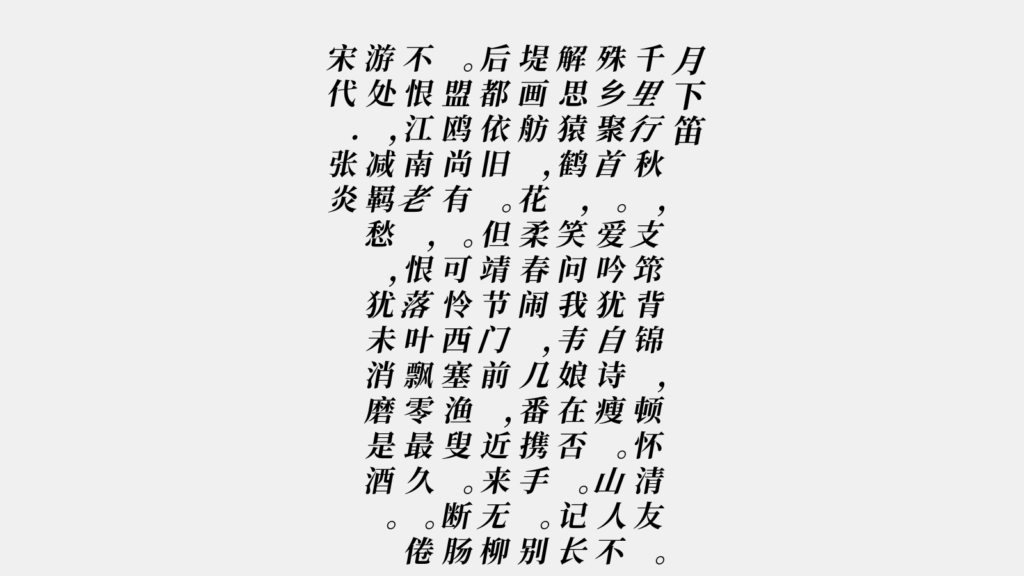 月下笛
千里行秋,支筇背锦,顿怀清友。
殊乡聚首。爱吟犹自诗瘦。山人不
解思猿鹤,笑问我韦娘在否。记长
堤画舫,花柔春闹,几番携手。别
后都依旧。但靖节门前,近来无柳
。盟鸥尚有。可怜西塞渔叟。断肠
不恨江南老,恨落叶飘零最久。倦
游处,减羁愁,犹未消磨是酒。
宋代.张炎